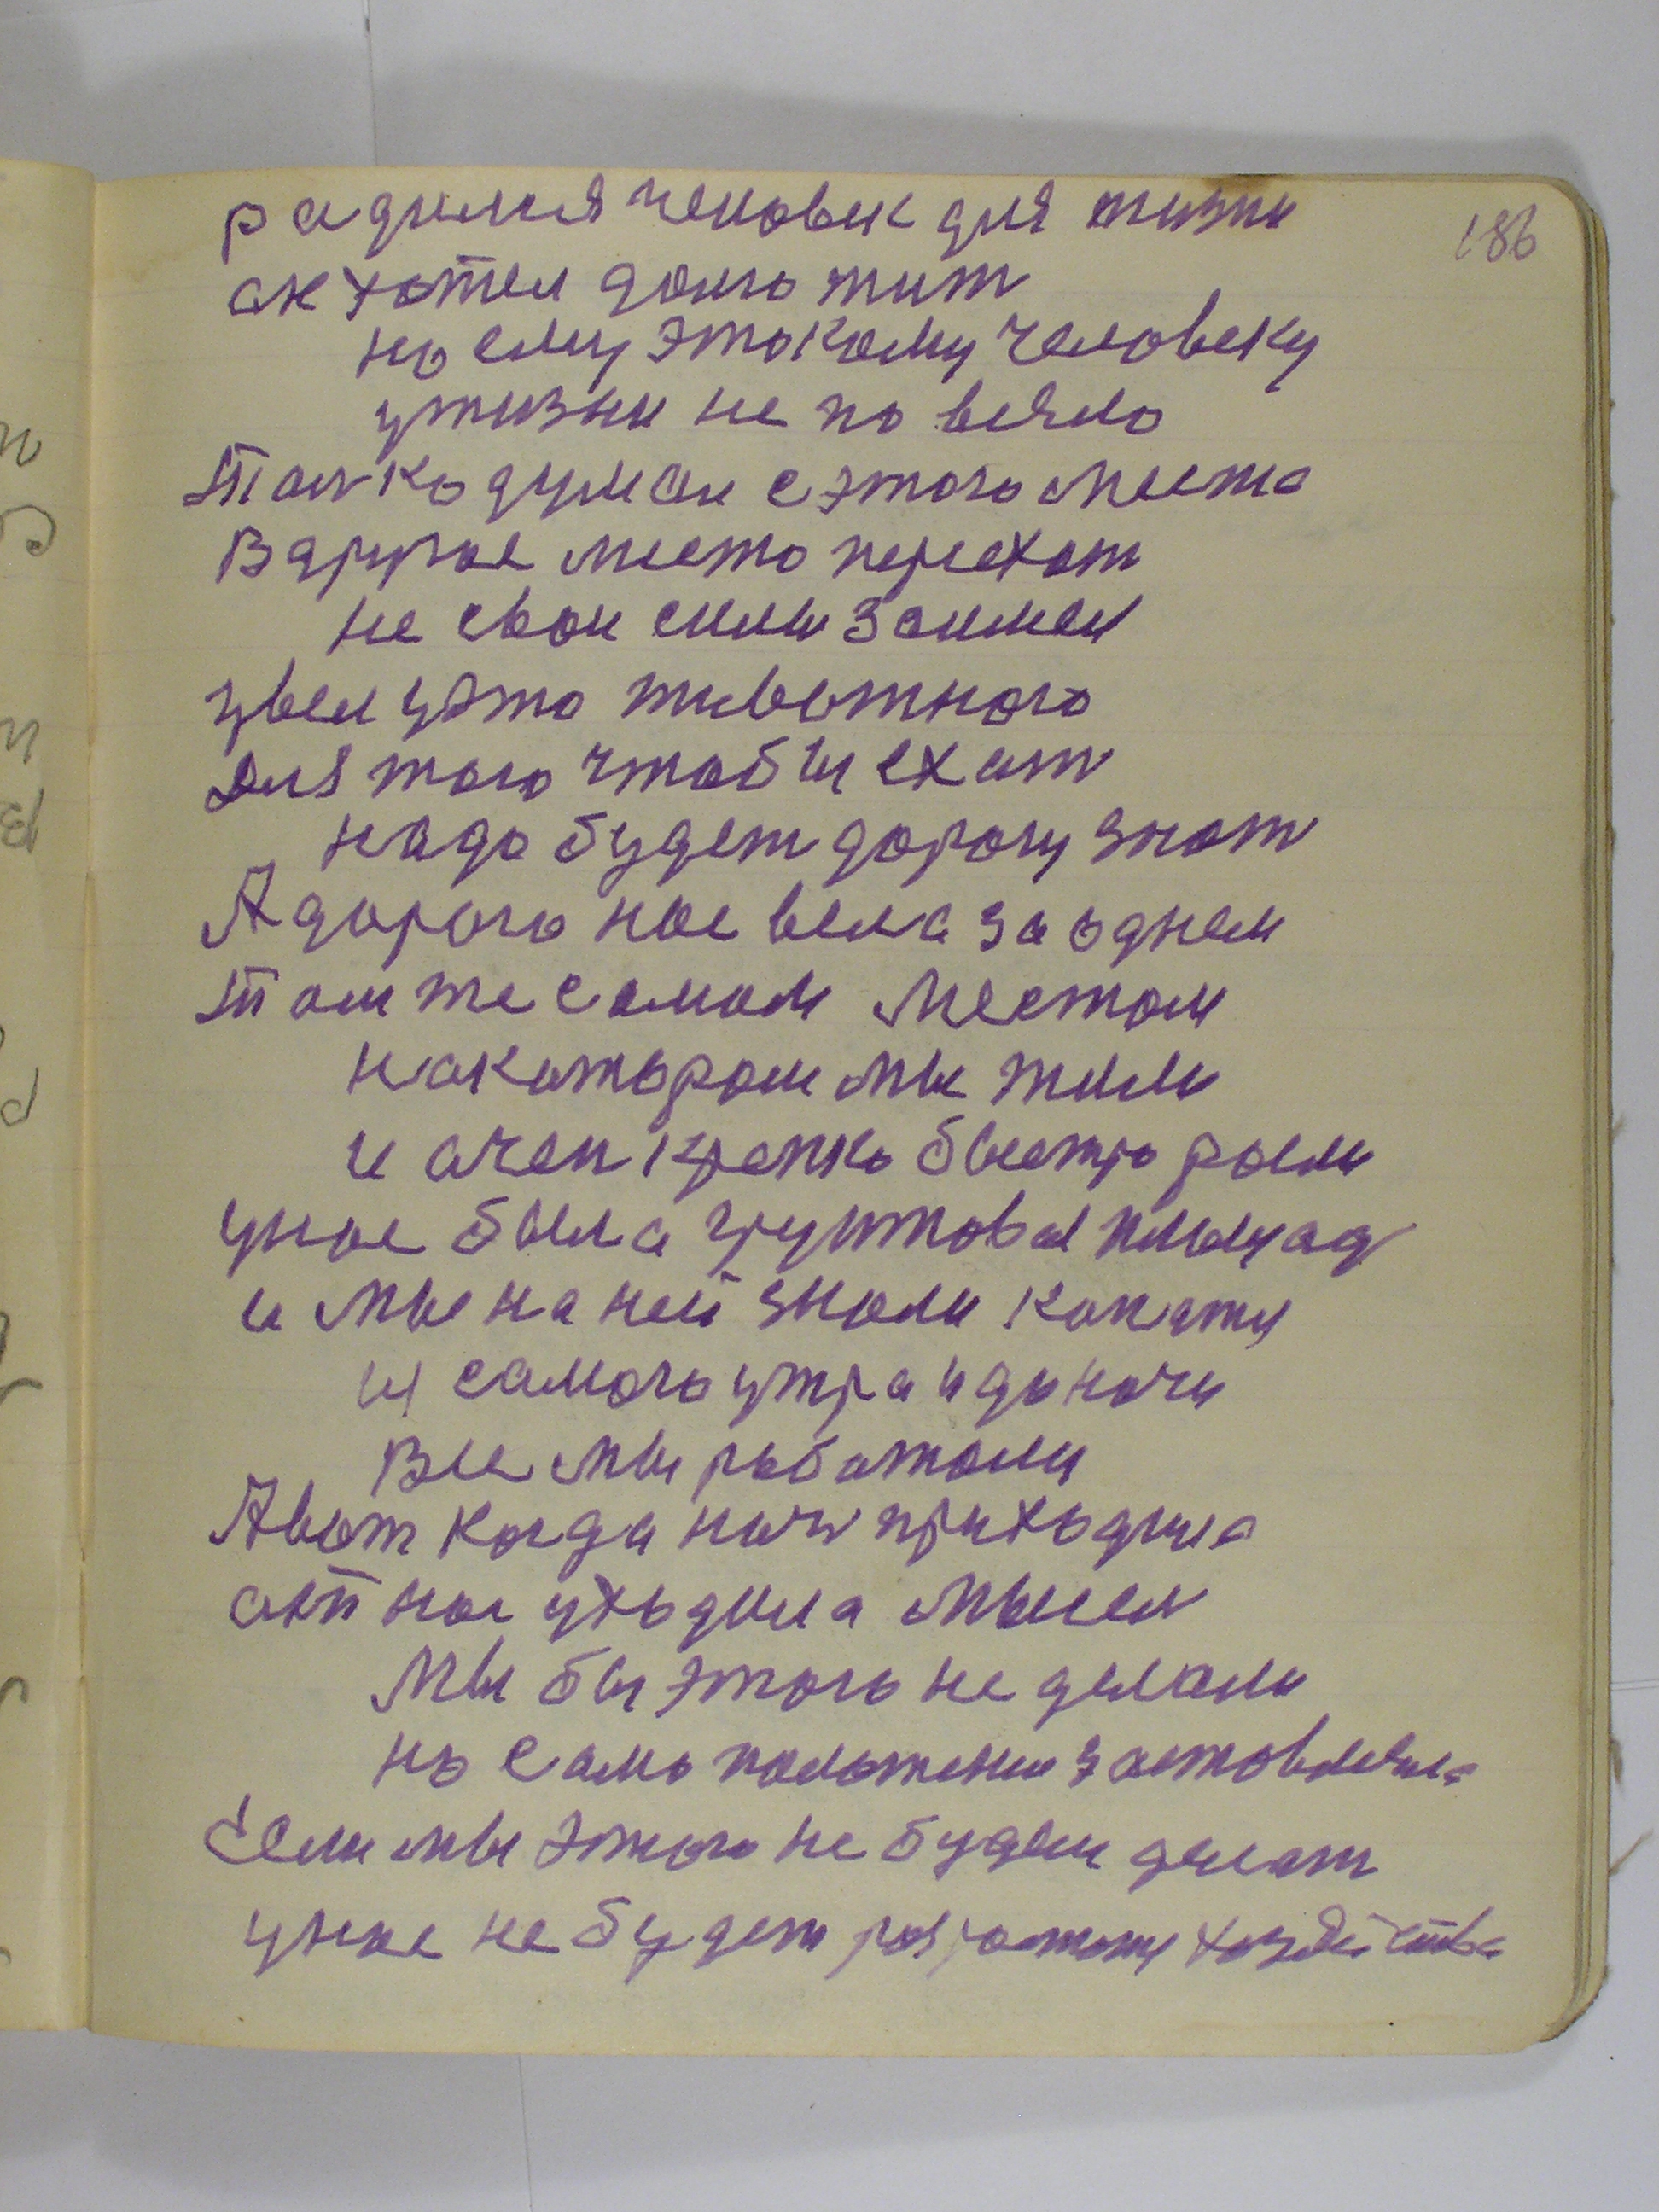 186
радился человек для жизни
он хотел долго жит
но ему этокому человеку
ужизни не по везло
Толко думал с этого места
Вдругое место переехат
не свои силы заимел
увел узто животного
Для того чтобы ехат
надо будет дорогу знат
А дорога нас вела за однем
Тем же самом местом
накотором мы жили
и очен крепко быстро росли
унас была грунтовая площад
и мы на ней знали копатся
и самого утра идоночи
Все мы работали
Авот когда ночь приходила
от нас уходила мысел
Мы бы этого не делали
но само положения заставляла
Если мы этого не будем делат
унас не будет хозяйства